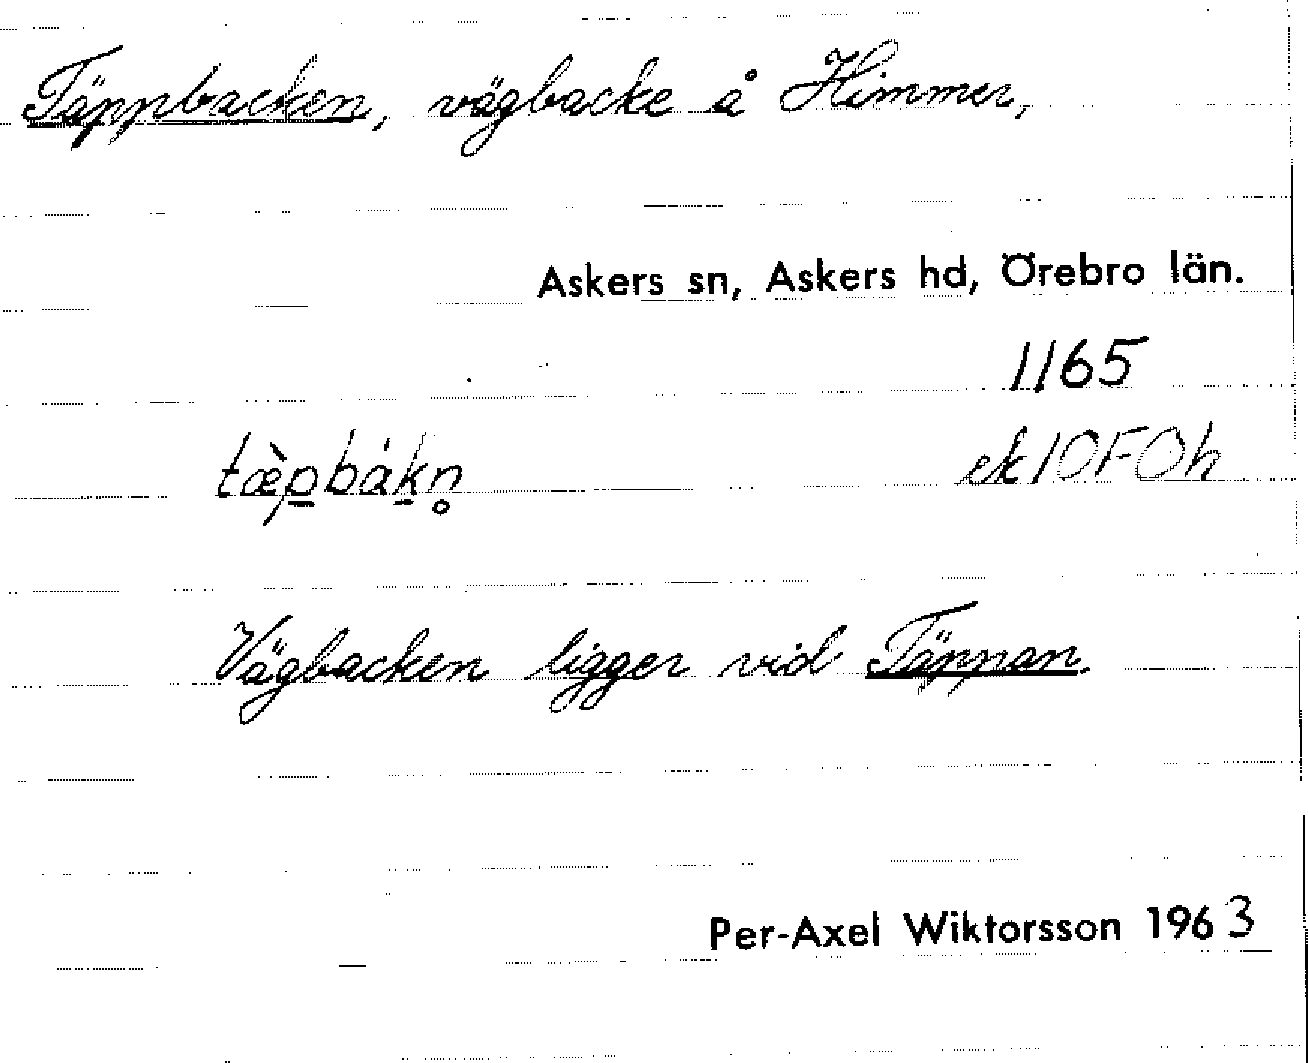 Täppbacken, vägbacke å Himmer,
Askers sn, Askers hd, Örebro län.
1165
tæ̀p̲bák̲n̥ ek10F0h
Vägbacken ligger vid Täppan.
Per-Axel Wiktorsson 1963